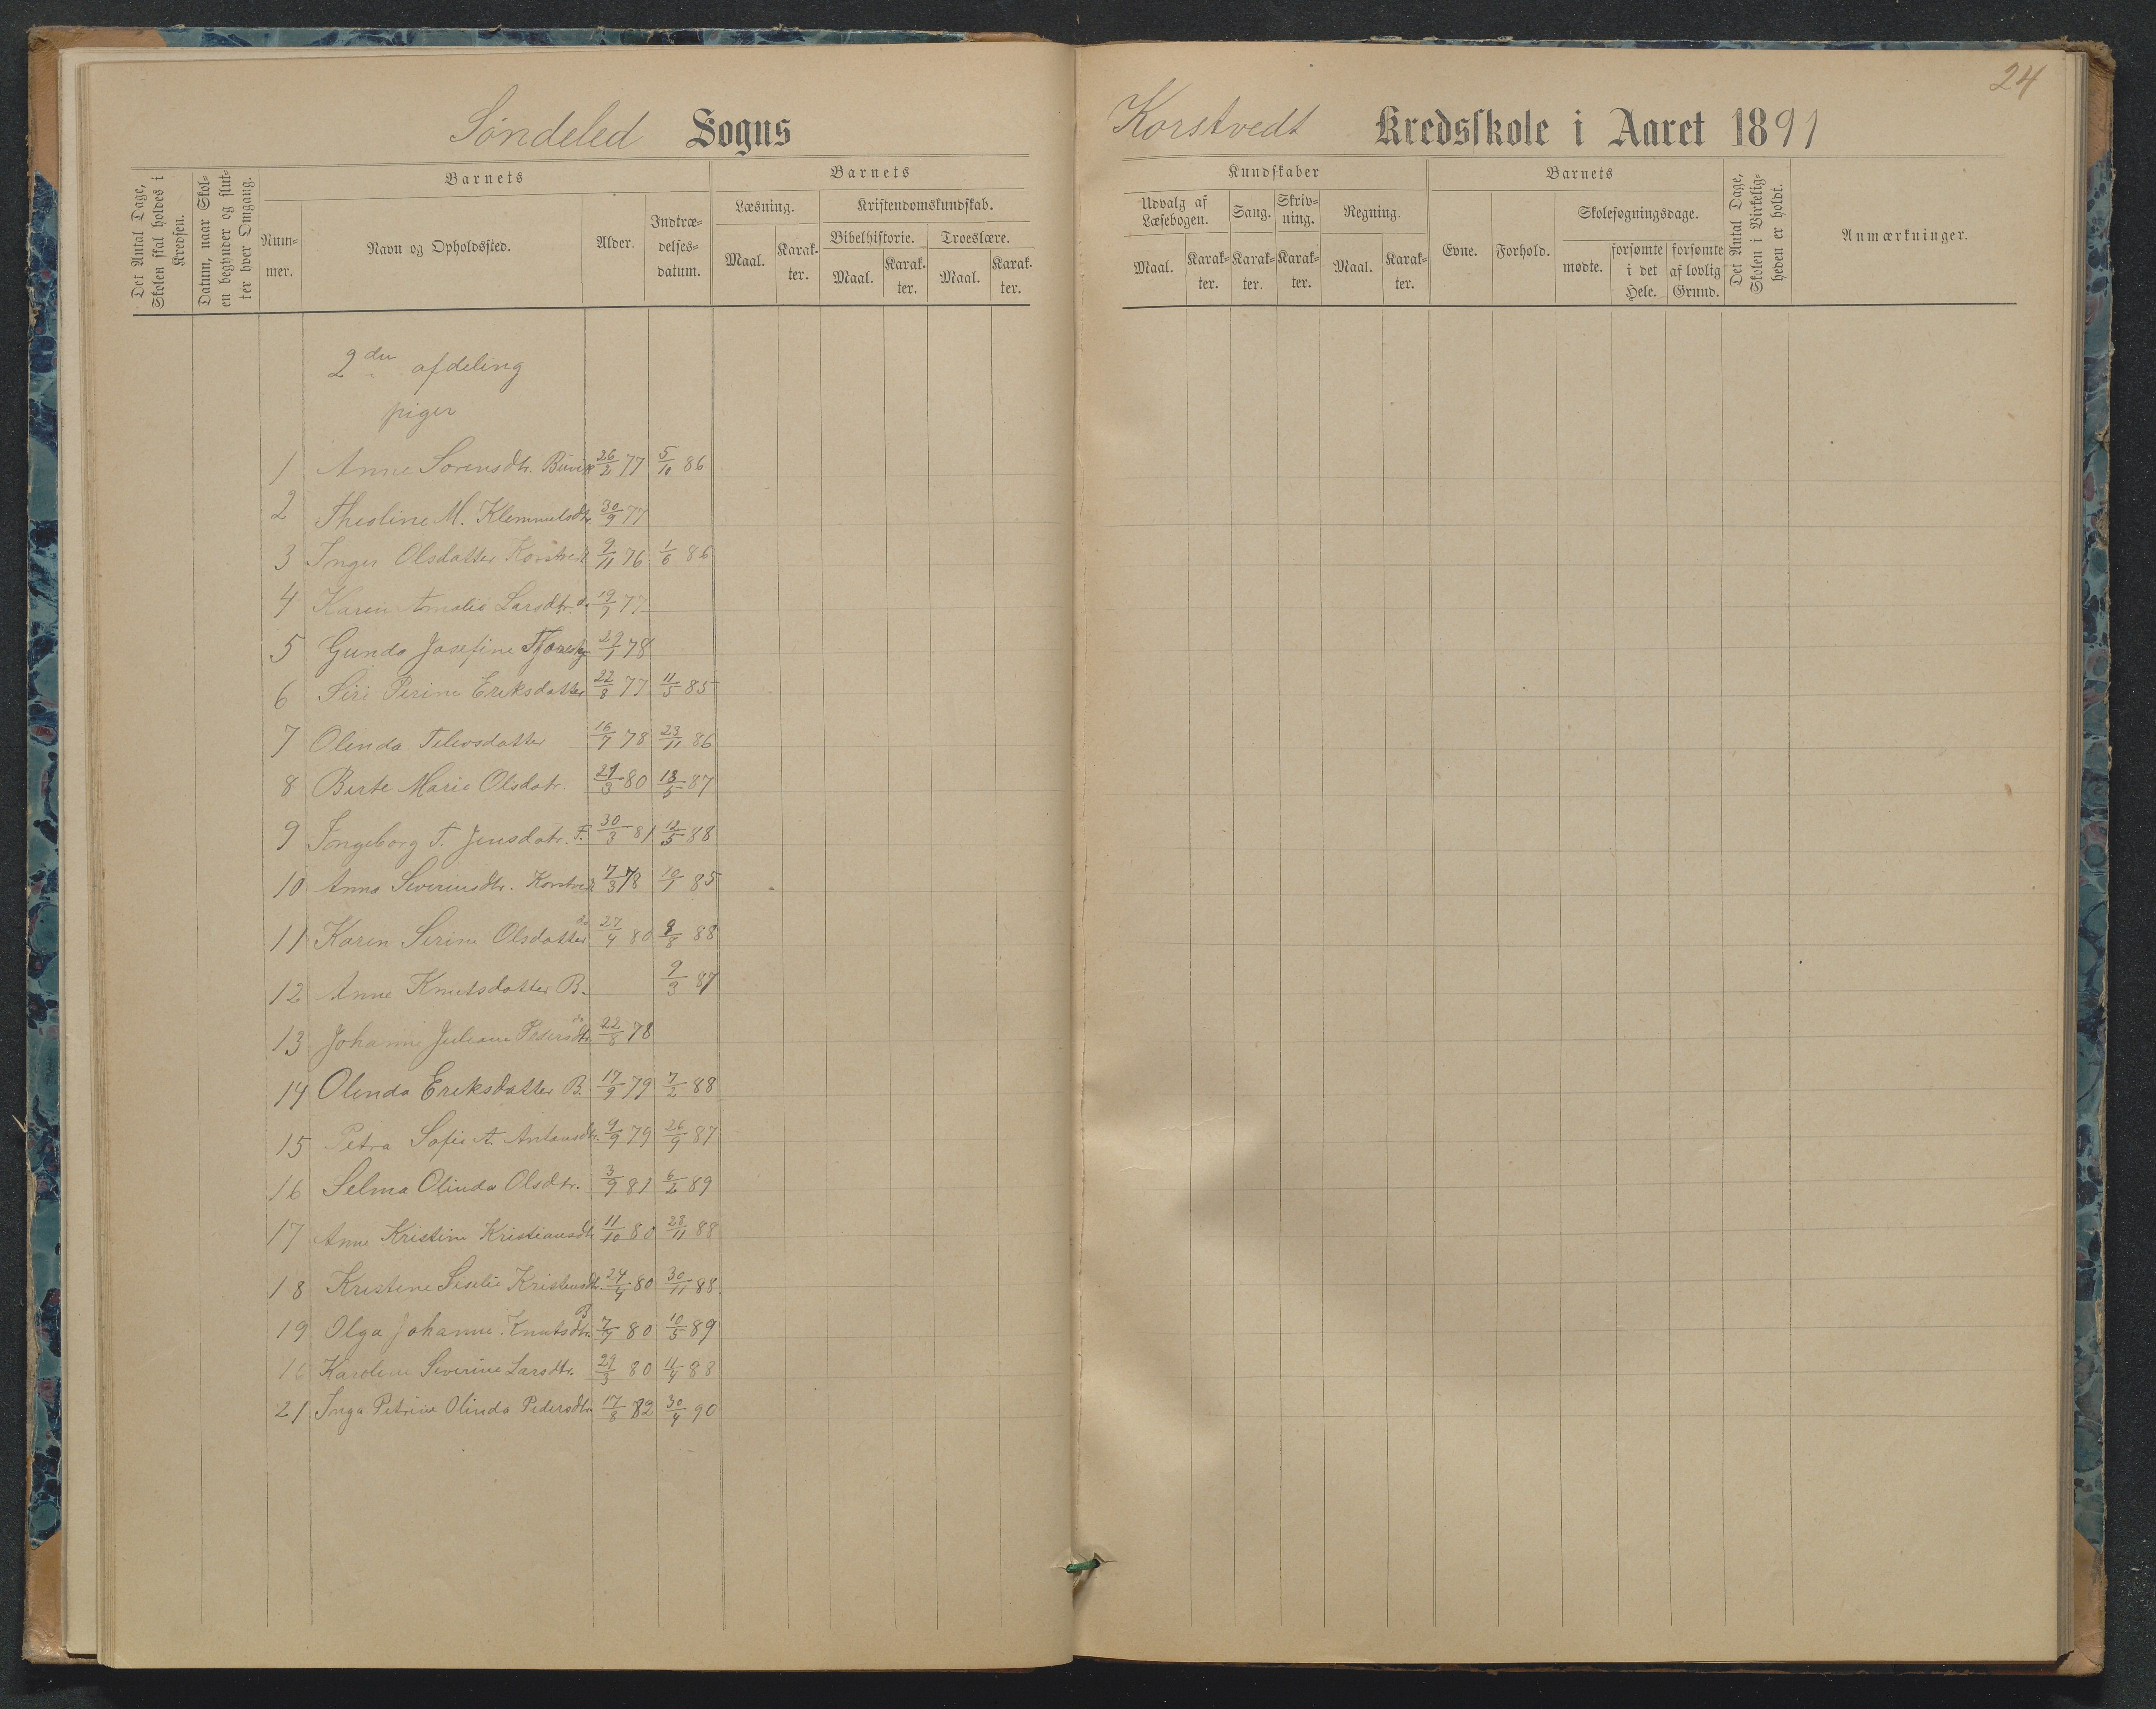 24
Søndeled Sogns
Korstvedt Kredsskole i Aaret 1891
Det Antal Dage, Skolen skal holdes i Kredsen.
Datum, naar Skolen begynder og slutter hver Omgang.
Barnets
Num-
mer.
Navn og Opholdssted.
Alder.
Indtræ-
delses-
datum.
Barnets
Læsning.
Kristendomskundskab.
Bibelhistorie.
Troeslære.
Maal.
Karak-
ter.
Maal.
Karak-
ter.
Maal.
Karak-
ter.
Kundskaber
Udvalg af
Læsebogen.
Sang.
Skriv-
ning.
Regning.
Maal.
Karak-
ter.
Karak-
ter.
Karak-
ter.
Maal.
Karak-
ter.
Barnets
Evne.
Forhold.
Skolesøgningsdage.
mødte.
forsømte
i det
Hele.
forsømte
af lovlig
Grund.
Det Antal Dage, Skolen i Virkeligheden er holdt.
Anmærkninger.
2den afdeling
piger
1 Anne Sorensdtr. Buvik 26/2 77 5/10 86
2 Theoline M. Klemmetsdtr. 30/9 77
3 Inger Olsdatter Korstvedt 9/11 76 1/6 86
4 Karen Amalie Larsdtr. do 19/7 77
5 Gunda Josefine 29/1 78
6 Siri Perine Eriksdatter 22/8 77 11/5 85
7 Olenda Televsdatter 16/7 78 23/11 86
8 Berte Marie Olsdatr. 21/3 80 13/5 87
9 Ingeborg T. Jensdatr. F. 30/3 81 12/5 88
10 Anna Severinsdtr. Korstvedt 7/3 78 19/1 85
11 Karen Serine Olsdatter do 27/4 80 9/8 88
12 Anne Knutsdatter B. 9/3 87
13 Johanne Juliane Pedersdtr. do 22/8 78
14 Olenda Eriksdatter B. 17/9 79 7/2 88
15 Petra Sofie A. Antonsdtr. 9/9 79 26/9 87
16 Selma Olinda Olsdtr. 3/9 81 6/2 89
17 Anne Kristine Kristiansdtr. 11/10 80 28/11 88
18 Kristine Siselie Kristensdtr. 24/4 80 30/11 88
19 Olga Johanne Knutsdtr. B 7/7 80 10/5 89
16 Karoline Severine Larsdtr. 29/3 80 11/4 88
21 Inga Petrine Olinda Pedersdtr. 17/8 82 30/4 90